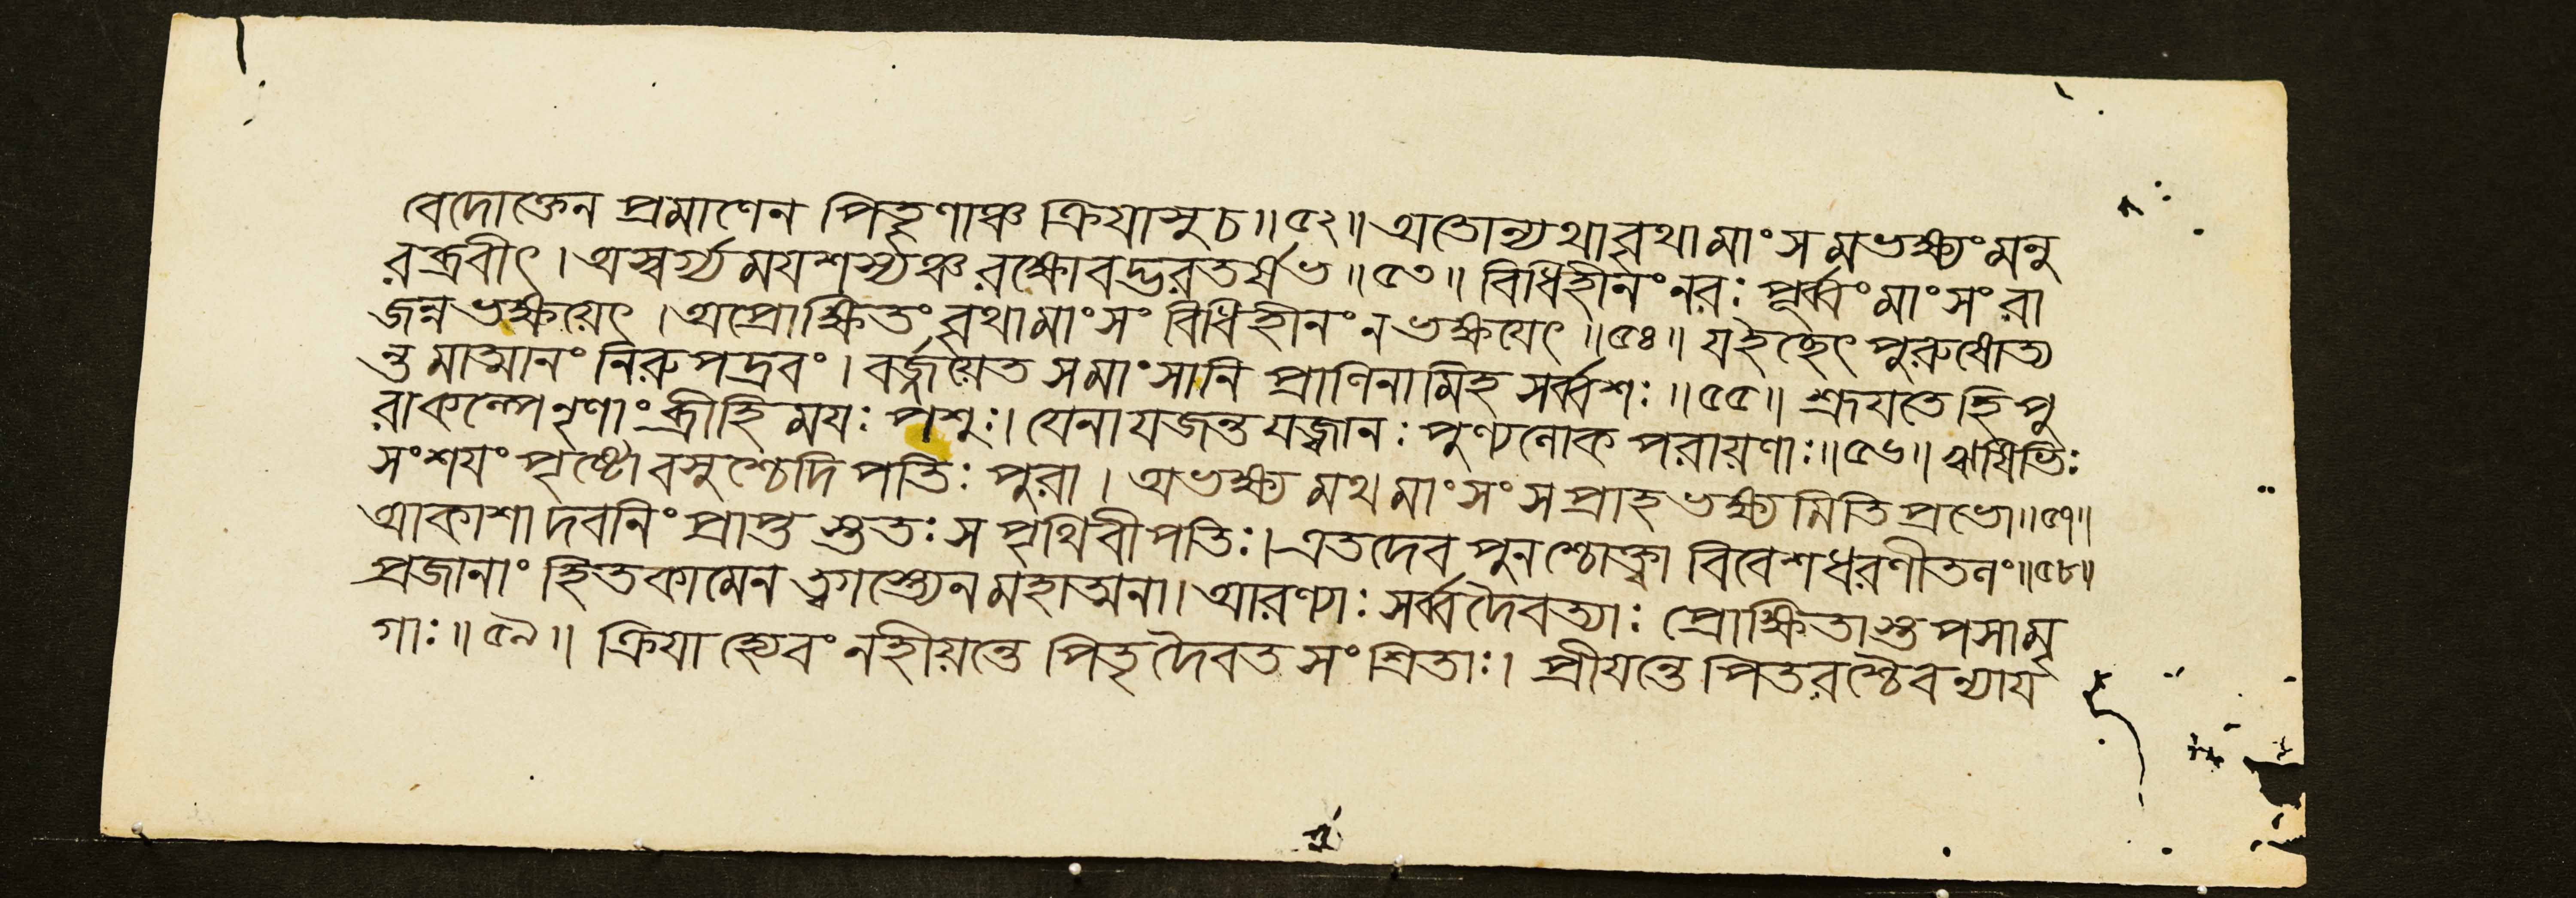 বেদোক্তেন প্রমাণেন পিতৄণাঞ্চ ক্রিযাসু চ॥ ৫২॥ অতোন্যথা বৃথা মাংসমভক্ষ্যং মনু
রব্রবীৎ। অস্বর্গ্যময়শস্যঞ্চ রক্ষোবদ্ভরতর্ষভ॥ ৫৩॥ বিধিহীনং নরঃ পূর্ব্বং মাংসং রা
জন্ন ভক্ষয়েৎ। অপ্রোক্ষিতং বৃথা মাংসং বিধিহীনং ন ভক্ষয়েৎ॥ ৫৪॥ য ইচ্ছেৎ পুরুষোত্য
ন্তমাত্মানং নিরুপদ্রবং। বর্জ্জয়েত স মাংসানি প্রাণিনামিহ সর্ব্বশঃ॥ ৫৫॥ শ্রূয়তে হি পু
রাকল্পে নৃণাং ব্রীহিময়ঃ পশুঃ। যেনাযজন্ত যজ্বানঃ পুণ্যলোকপরায়ণাঃ॥ ৫৬॥ ঋষিভিঃ
সংশয়ং পৃষ্টো বসুশ্চেদিপতিঃ পুরা। অভক্ষ্যমথ মাংসং স প্রাহ ভক্ষ্যমিতি প্রভো॥ ৫৭॥
আকাশাদবনিং প্রাপ্তস্ততঃ স পৃথিবীপতিঃ। এতদেব পুনশ্চোক্ত্বা বিবেশ ধরণীতলং॥ ৫৮॥
প্রজানাং হিতকামেন ত্বগস্ত্যেন মহাত্মনা। আরণ্যাঃ সর্ব্বদৈবত্যাঃ প্রোক্ষিতাস্তপসা মৃ
গাঃ॥ ৫৯॥ ক্রিযা হ্যেবং ন হীয়ন্তে পিতৃদৈবতসংশ্রিতাঃ। প্রীয়ন্তে পিতরশ্চৈব ন্যায